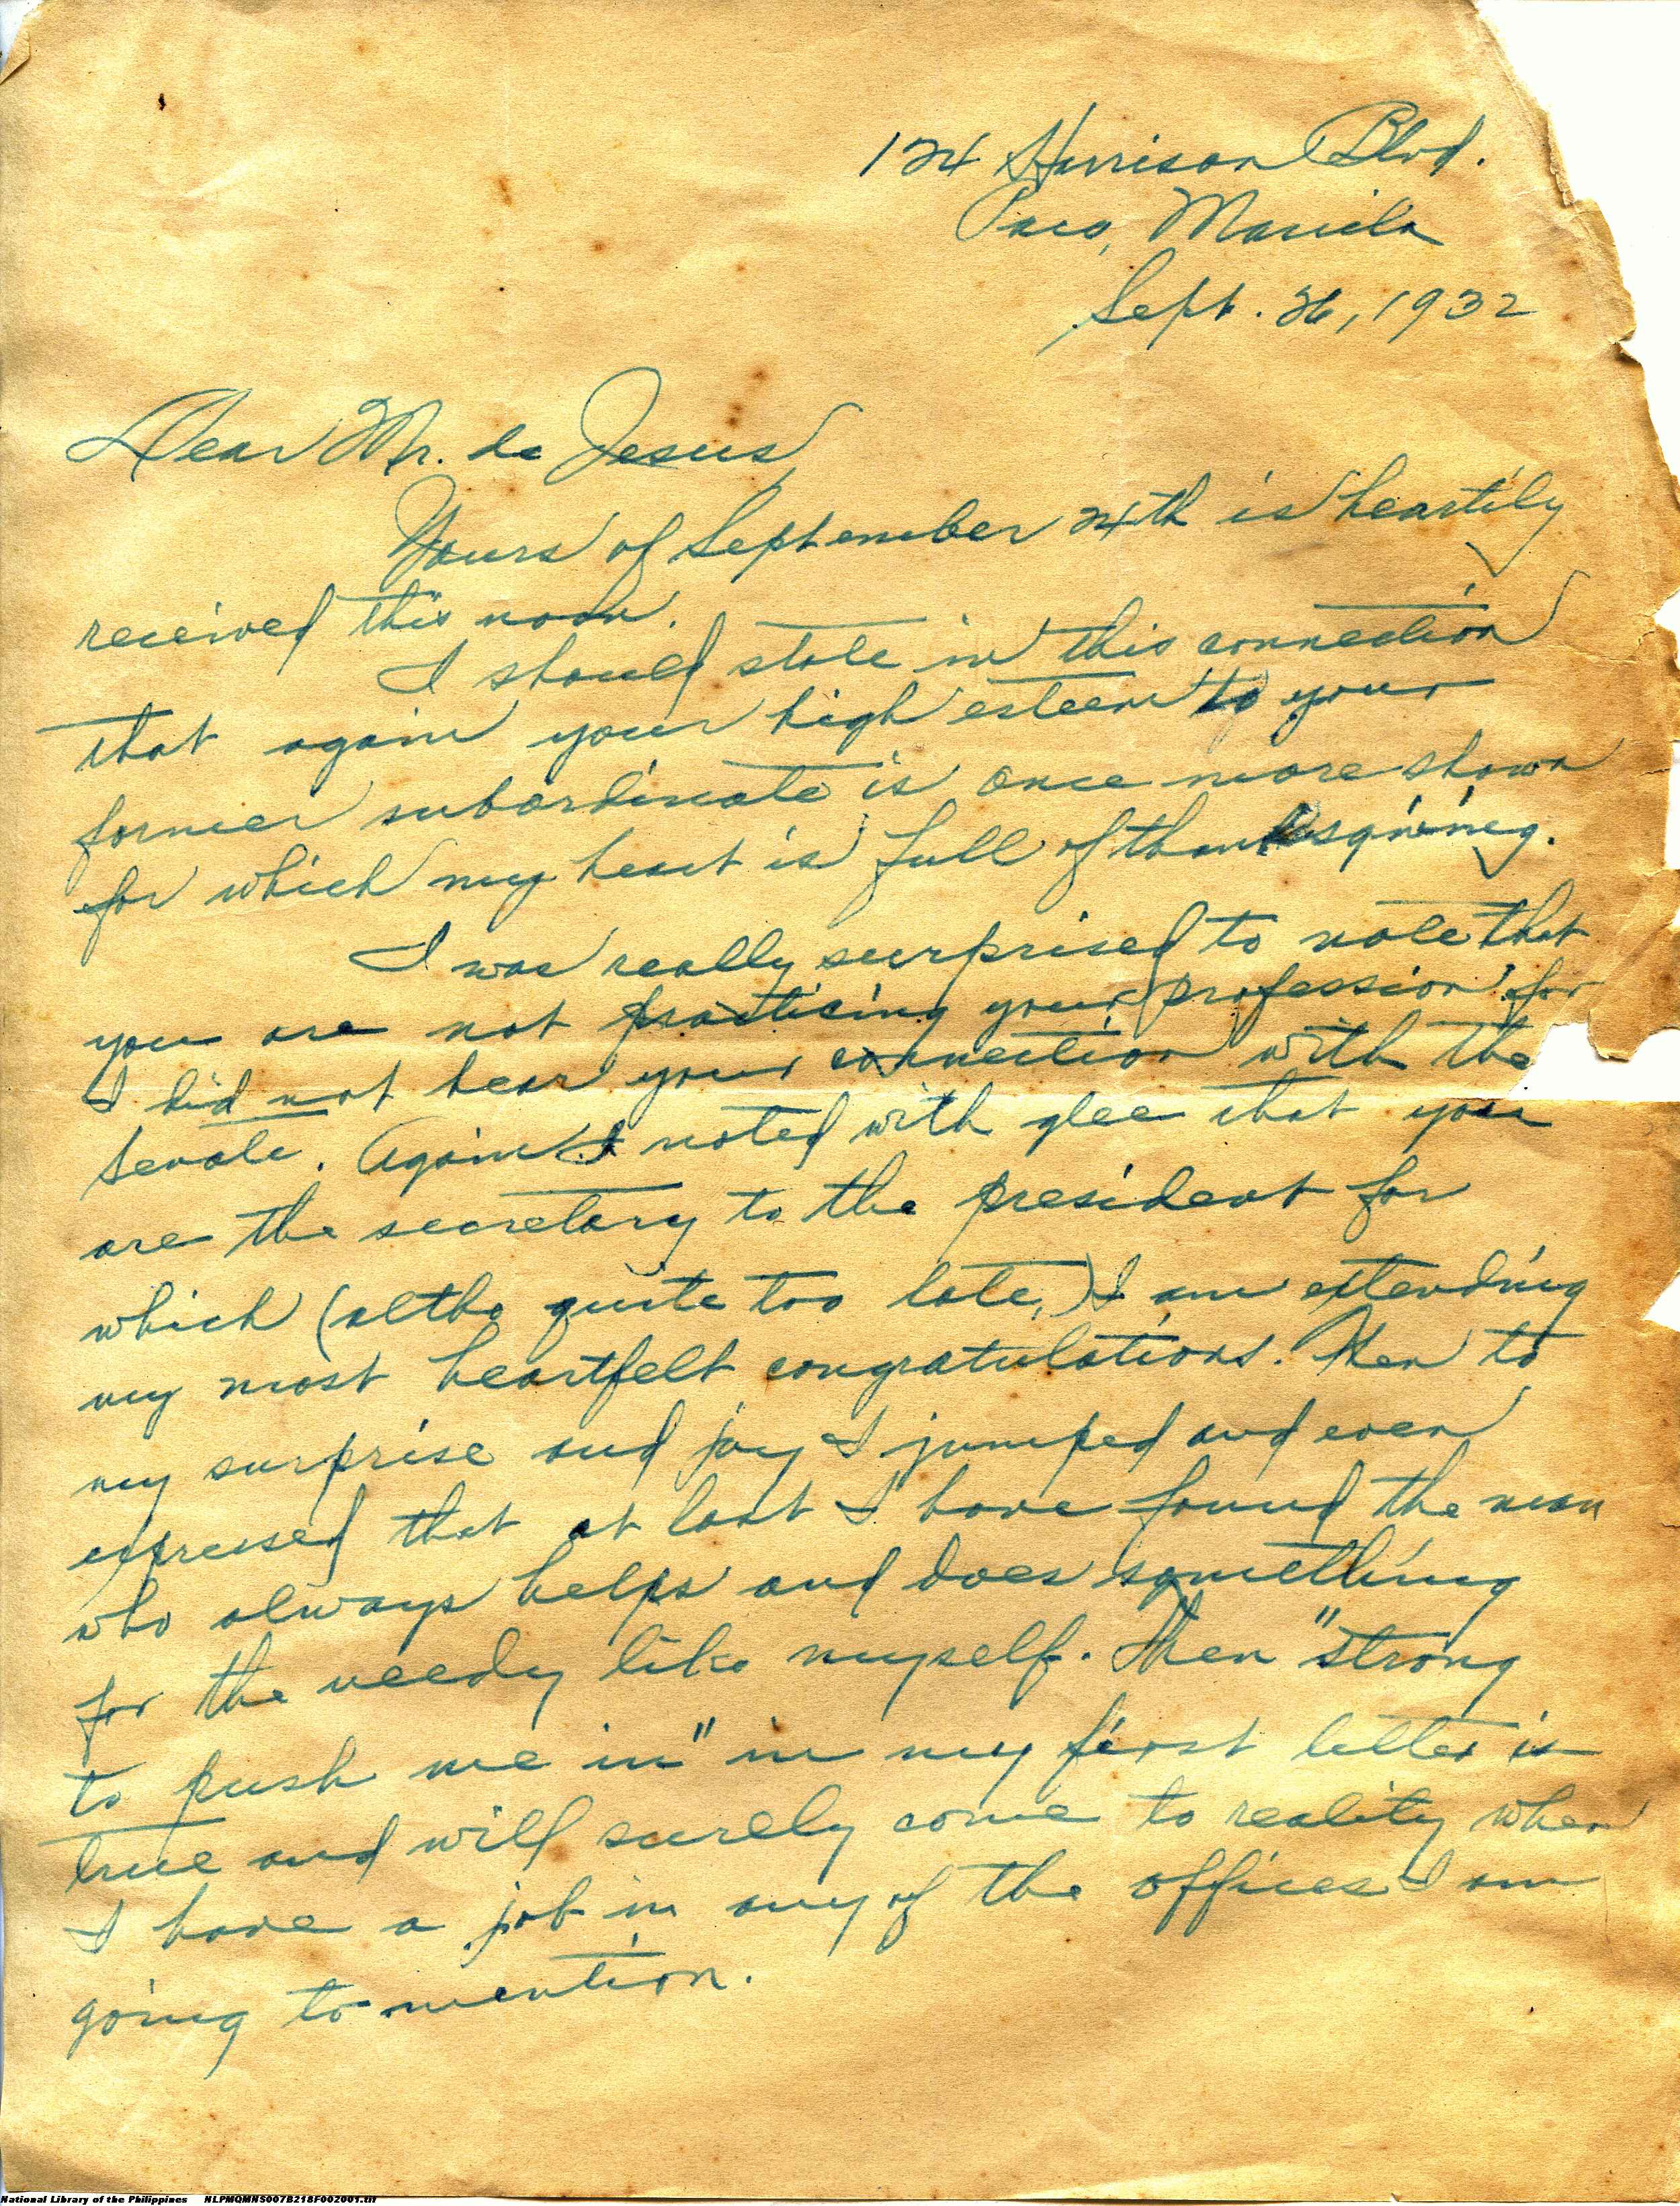 124 Harrison Blvd.
Paco, Manila
Sept. 26, 1932
Dear Mr. de Jesus,
Yours of September 24th is heartily
received this noon.
I should state in this connection
that again your high esteem to your
former subordinate is once more shown
for which my heart is full of thanksgiving.
I was really surprised to note that
you are not practicing your profession for
I did not hear your connection with the
Senate. Again I noted with glee that you
are the secretary to the president for
which (altho quite too late,) I am extending
my most heartfelt congratulations. Then to
my surprise and joy I jumped and even
expressed that at last I have found the man
who always helps and does something
for the needy like myself. Then "strong
to push me in" in my first letter is
true and will surely come to reality when
I have a job in any of the offices I am
going to mention.
National Library of the Philippines NLPMQMNS007B218F002001.tif